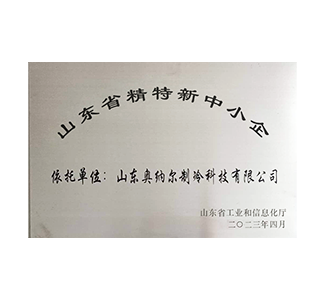 山东省精特新中小企
依托单位：山东奥纳尔制冷科技有限公司
山东省工业和信息化厅
二〇二三年四月